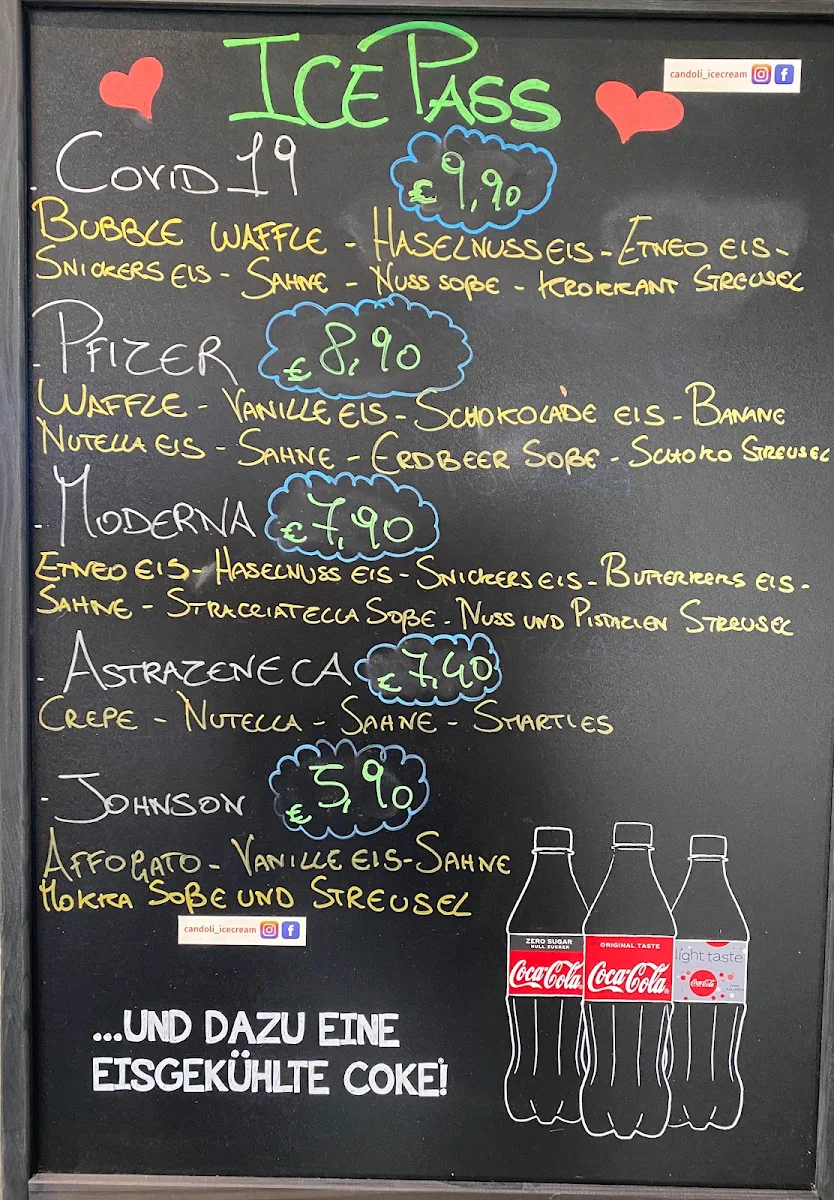 ICE PASS
candoli_icecream
. COVID 19 € 9,90
BUBBLE WAFFLE - HASELNUSS EIS - ETNEO EIS -
SNICKERS EIS - SAHNE - NUSS SOßE - KROKKANT STREUSEL
. PFIZER € 8,90
WAFFLE - VANILLE EIS - SCHOKOLADE EIS - BANANE
NUTELLA EIS - SAHNE - ERDBEER SOßE - SCHOKO STREUSEL
- MODERNA € 7,90
ETNEO EIS - HASELNUSS EIS - SNICKERS EIS - BUTTERKEKS EIS -
SAHNE - STRACCIATELLA SOßE - NUSS UND PISTAZIEN STREUSEL
. ASTRAZENECA € 7,40
CREPE - NUTELLA - SAHNE - SMARTIES
- JOHNSON € 5,90
AFFOGATO - VANILLE EIS - SAHNE
MOKKA SOßE UND STREUSEL
candoli_icecream
ZERO SUGAR
NULL ZUCKER
Coca-Cola
ORIGINAL TASTE
Coca-Cola
light taste
Coca-Cola
...UND DAZU EINE
EISGEKÜHLTE COKE!